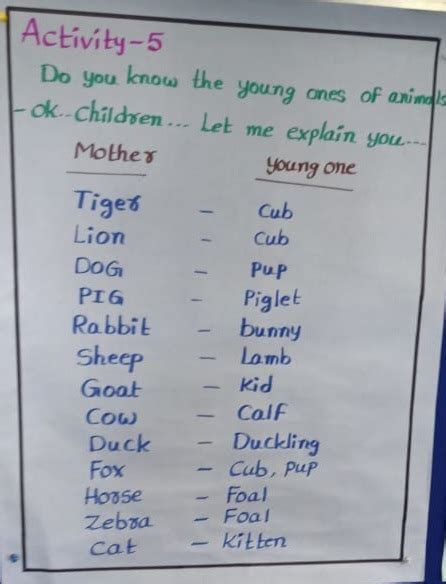 Activity-5
Do you know the young ones of animals
- OK.. Children... Let me explain you....
Mother Young one
Tiger - Cub
Lion - Cub
DOG - Pup
PIG - Piglet
Rabbit - bunny
Sheep - Lamb
Goat - Kid
Cow - Calf
Duck - Duckling
Fox - Cub, pup
Horse - Foal
Zebra - Foal
Cat - Kitten